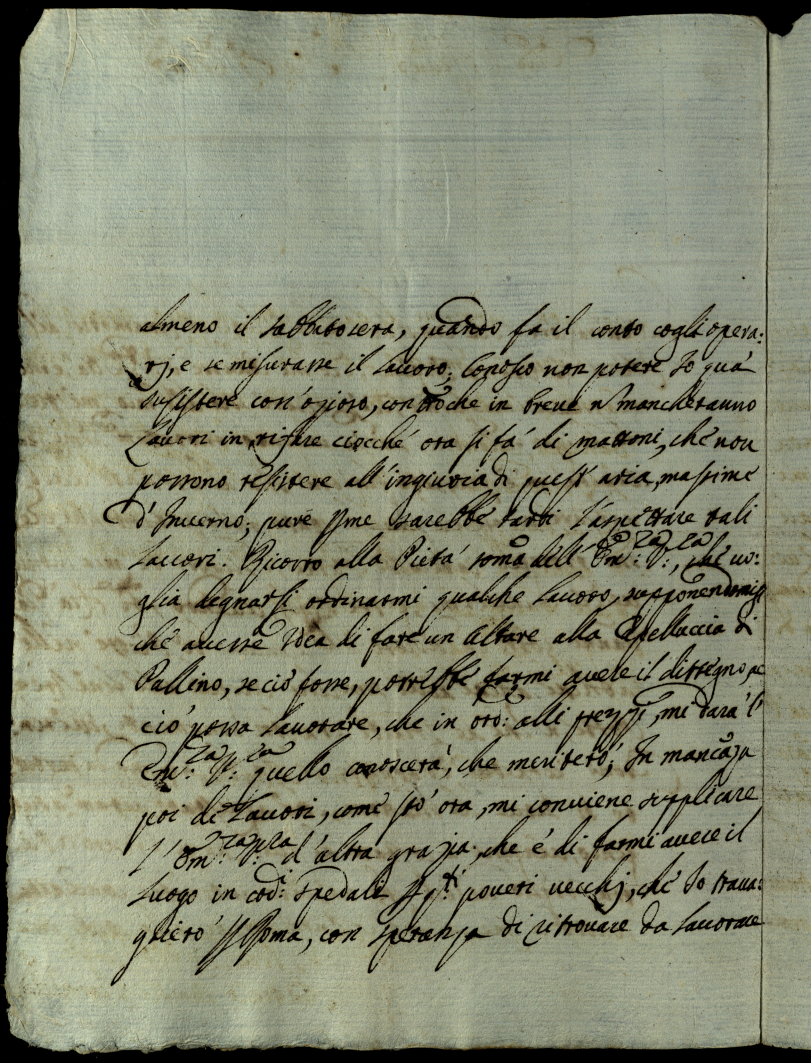 almeno il sabbato sera, quando fa il conto cogli opera:
rj, e se misurasse il lavoro; Conosco non potere Io quà
sussistere cosi ozioso, che in breve mancheranno
Lavori in rifare ciocché ora si fà di mattoni, ché non
possono resistere all'ingiuria di quest'aria, massime
d'Inverno; pure p me sarebbe tardi l'aspettare tali
lavori. Ricorro alla Pietà somã dell' Em:za V:ra, ché vo:
glia degnarsi ordinarmi qualche lavoro, supponendomisi
ché avesse Idea di fare un Altare alla Capelluccia di
Pallino, se ciò fosse, potrebbe farmi avere il dissegno, ac
ciò possa lavorare, che in ord: alli prezzi, mi darà l'
Em:za V:ra quello conoscerà, che meriterò; In mancãza
poi de Lavori, comé stò ora, mi conviene supplicare
L'Em:za V:ra d'altra grazia, che é di farmi avere il
luogo in cod: Spedale poveri vecchj, ché Io trava:
gliero p Roma, con speranza di ritrovare da lavorare